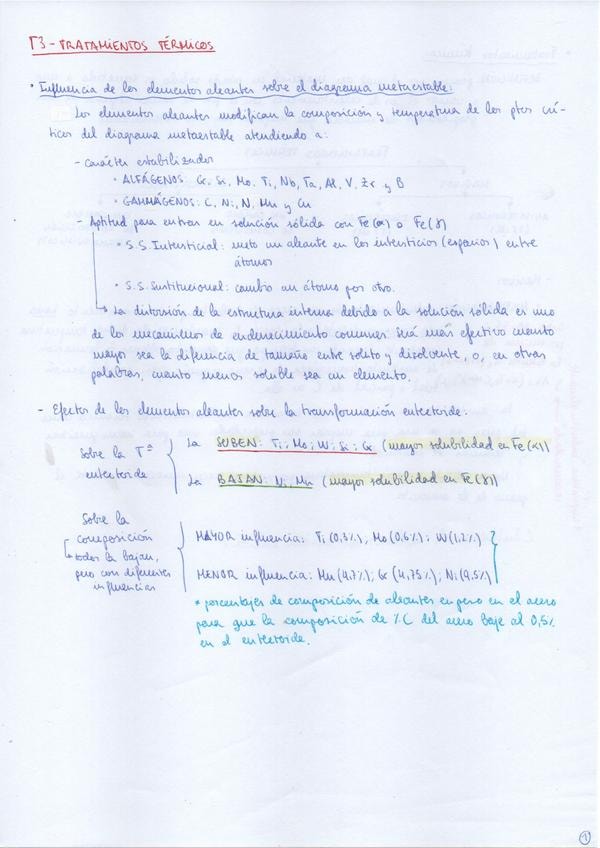 T3-TRATAMIENTOS TÉRMICOS
• Influencia de los elementos aleantes sobre el diagrama metaestable:
Los elementos aleantes modifican la composición y temperatura de los ptos crí-
ticos del diagrama metaestable atendiendo a:
- Carácter estabilizador
• ALFÁGENOS: Cr, Si, Mo, Ti, Nb, Ta, Al, V, Zr y B
• GAMMÁGENOS: C, Ni, N, Mn y Cu
- Aptitud para entrar en solución sólida con Fe(α) o Fe(γ)
• S.S. Intersticial: meto un aleante en los intersticios (espacios) entre
átomos
• S.S. Sustitucional: cambio un átomo por otro.
→ La distorsión de la estructura interna debido a la solución sólida es uno
de los mecanismos de endurecimiento comunes. Será más efectivo cuanto
mayor sea la diferencia de tamaño entre soluto y disolvente, o, en otras
palabras, cuanto menos soluble sea un elemento.
- Efectos de los elementos aleantes sobre la transformación eutectoide:
Sobre la Tª
eutectoide
La SUBEN: Ti; Mo; W; Si; Cr (mayor solubilidad en Fe(α))
La BAJAN: Ni, Mn (mayor solubilidad en Fe(γ))
Sobre la
composición
→ todos la bajan,
pero con diferentes
influencias
MAYOR influencia: Ti (0,3%), Mo (0,6%); W (1,2%)
MENOR influencia: Mn (4,7%); Cr (4,75%); Ni (9,5%)
* porcentajes de composición de aleantes en peso en el acero
para que la composición de %C del acero baje al 0,5%
en el eutectoide.
1